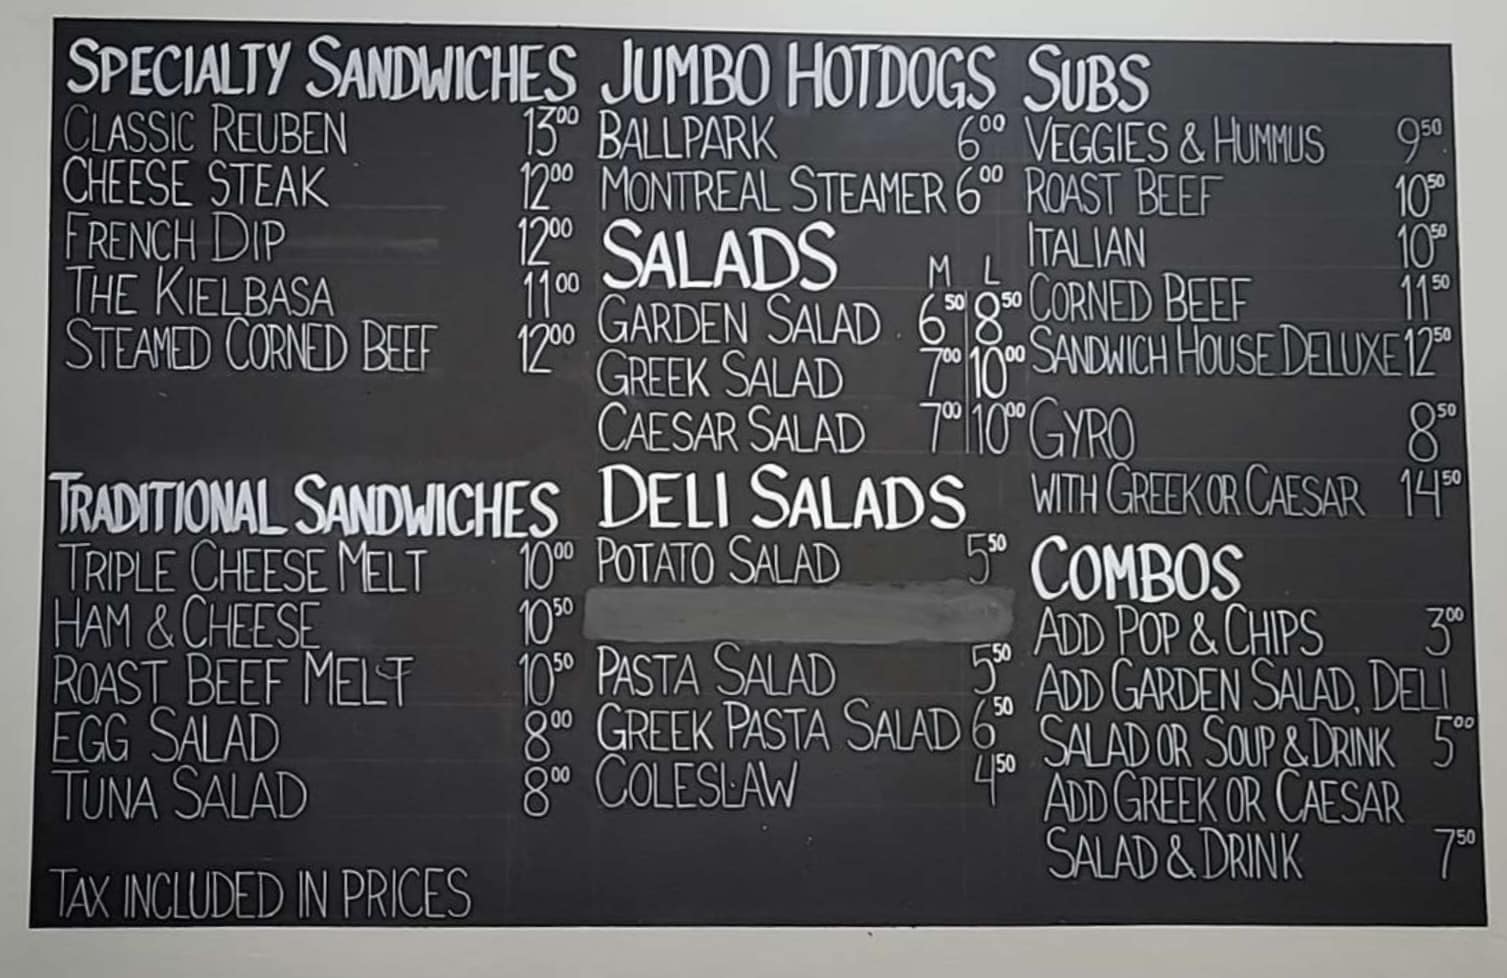 SPECIALTY SANDWICHES
CLASSIC REUBEN 13⁰⁰
CHEESE STEAK 12⁰⁰
FRENCH DIP 12⁰⁰
THE KIELBASA 11⁰⁰
STEAMED CORNED BEEF 12⁰⁰
TRADITIONAL SANDWICHES
TRIPLE CHEESE MELT 10⁰⁰
HAM & CHEESE 10⁵⁰
ROAST BEEF MELT 10⁵⁰
EGG SALAD 8⁰⁰
TUNA SALAD 8⁰⁰
TAX INCLUDED IN PRICES
JUMBO HOTDOGS
BALLPARK 6⁰⁰
MONTREAL STEAMER 6⁰⁰
SALADS M L
GARDEN SALAD 6⁵⁰ 8⁵⁰
GREEK SALAD 7⁰⁰ 10⁰⁰
CAESAR SALAD 7⁰⁰ 10⁰⁰
DELI SALADS
POTATO SALAD 5⁵⁰
PASTA SALAD 5⁵⁰
GREEK PASTA SALAD 6⁵⁰
COLESLAW 4⁵⁰
SUBS
VEGGIES & HUMMUS 9⁵⁰
ROAST BEEF 10⁵⁰
ITALIAN 10⁵⁰
CORNED BEEF 11⁵⁰
SANDWICH HOUSE DELUXE 12⁵⁰
GYRO 8⁵⁰
WITH GREEK OR CAESAR 14⁵⁰
COMBOS
ADD POP & CHIPS 3⁰⁰
ADD GARDEN SALAD, DELI
SALAD OR SOUP & DRINK 5⁰⁰
ADD GREEK OR CAESAR
SALAD & DRINK 7⁵⁰